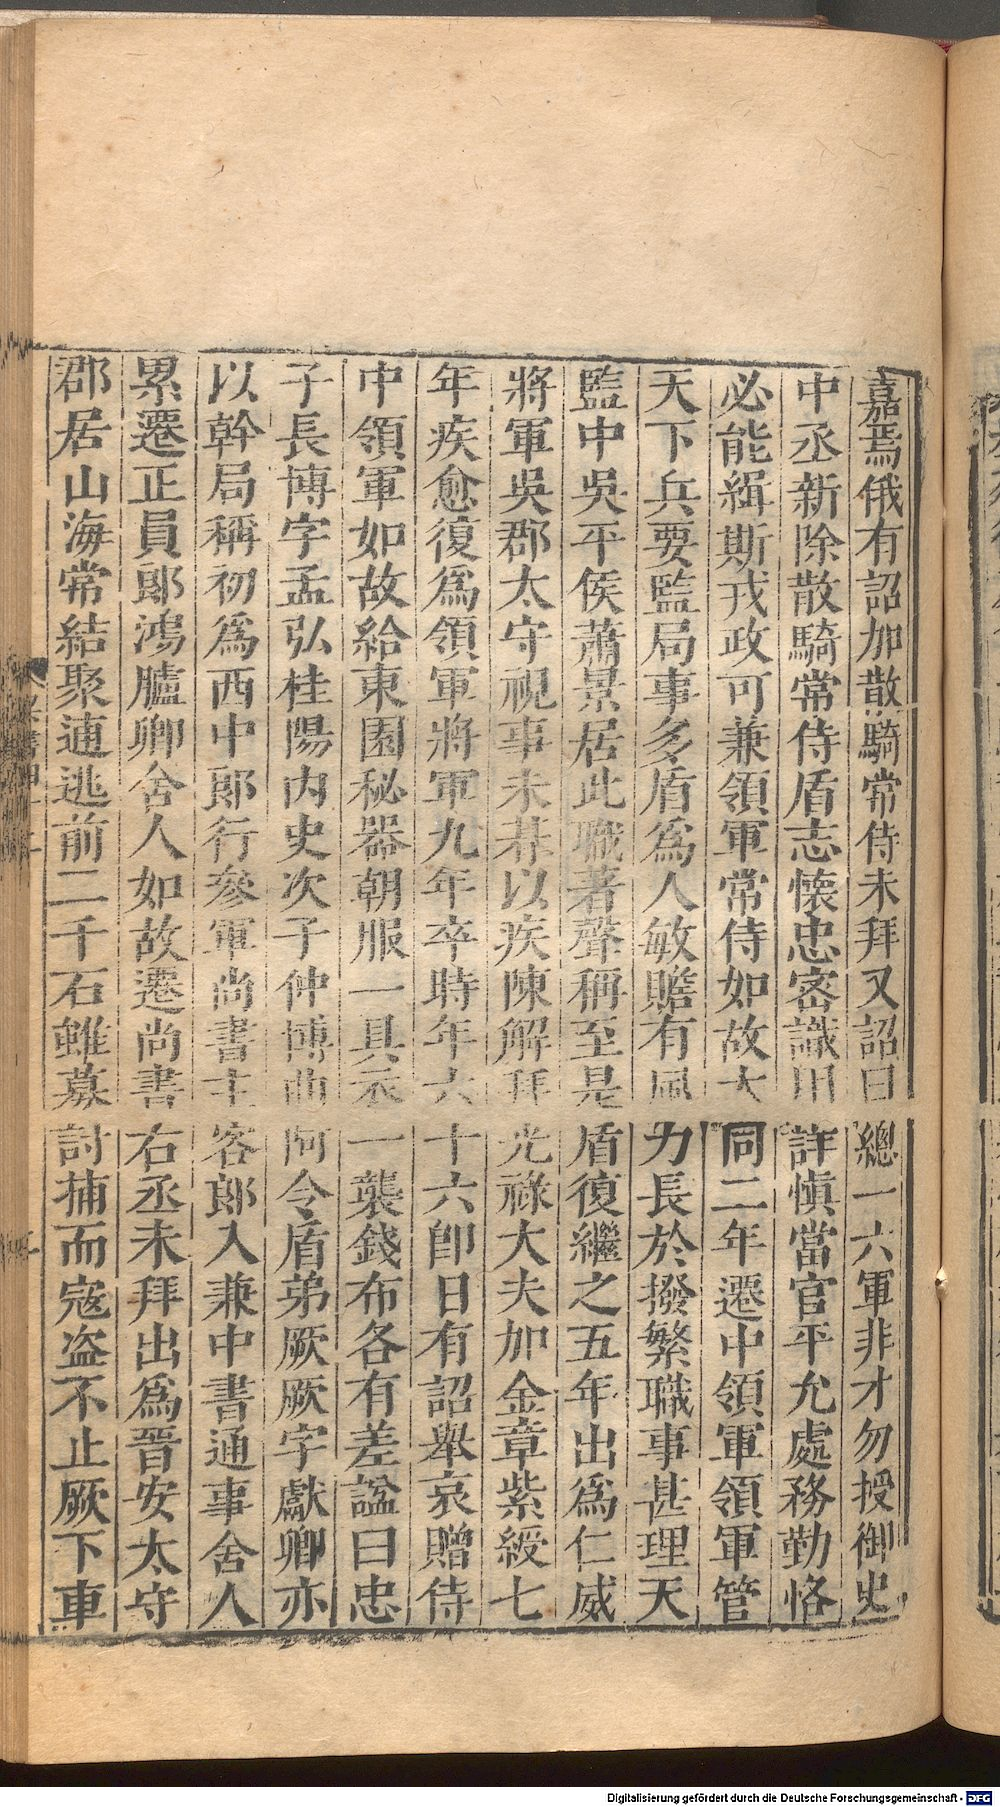 嘉焉俄有詔加散騎常侍未拜又詔曰總一六軍非才勿授御史
中丞新除散騎常侍盾志懷忠密識用詳愼當官平允處務勤恪
必能緝斯戎政可兼領軍常侍如故大同二年遷中領軍領軍管
天下兵要監局事多盾爲人敏贍有風力長於撥繁職事甚理天
監中吳平侯蕭景居此職著聲稱至是盾復繼之五年出爲仁威
將軍吳郡太守視事未朞以疾陳解拜光祿大夫加金章紫綬七
年疾愈復爲領軍將軍九年卒時年六十六卽日有詔舉哀贈侍
中領軍如故給東園秘器朝服一具衣一襲錢布各有差諡曰忠
子長博字孟弘桂陽內史次子仲博曲阿令盾弟厥厥字獻卿亦
以幹局稱初爲西中郎行參軍尚書主客郎入兼中書通事舍人
累遷正員郎鴻臚卿舍人如故遷尚書右丞未拜出爲晉安太守
郡居山海常結聚逋逃前二千石雖募討捕而寇盜不止厥下車
Digitalisierung gefördert durch die Deutsche Forschungsgemeinschaft - DFG